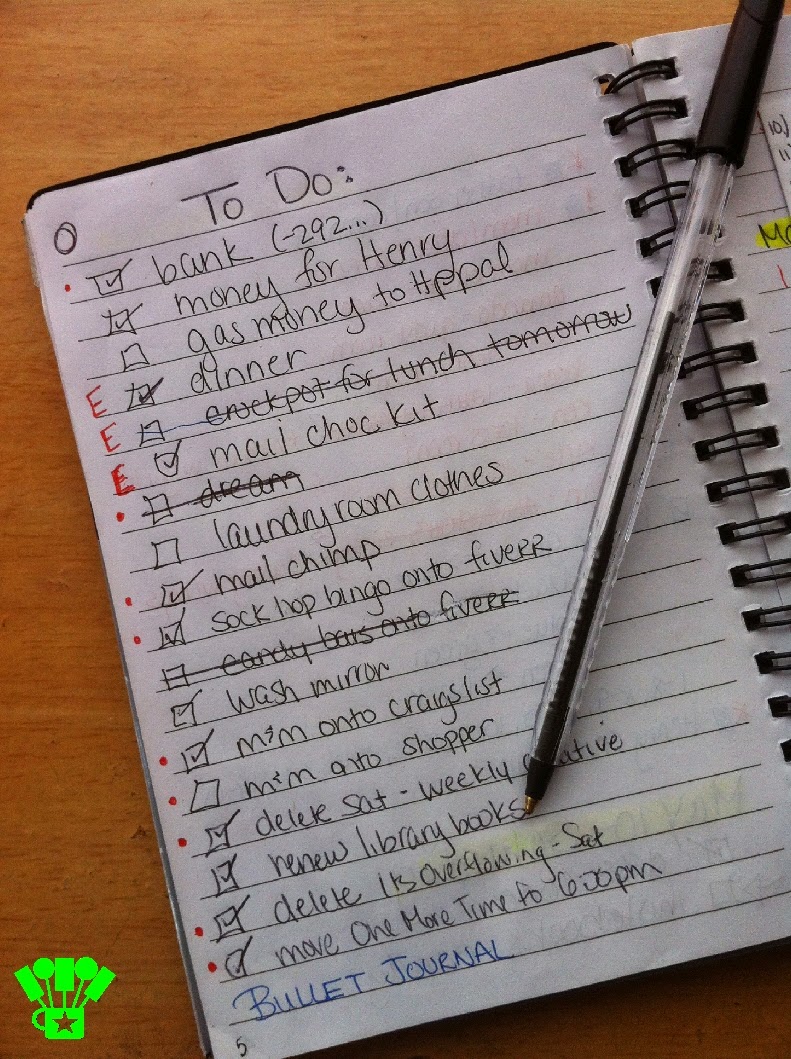 To Do:
bank (-292...)
money for Henry
gas money to Hppal
E dinner
E crockpot for lunch tomorrow
E mail choc kit
dream
laundry room clothes
mail chimp
sock hop bingo onto fiverr
candy bars onto fiverr
wash mirror
m&m onto craigslist
m&m onto shopper
delete Sat - weekly
renew library books
delete It's Overflowing - Sat
move One More Time to 6:00pm
BULLET JOURNAL
5
10/
11
Mo